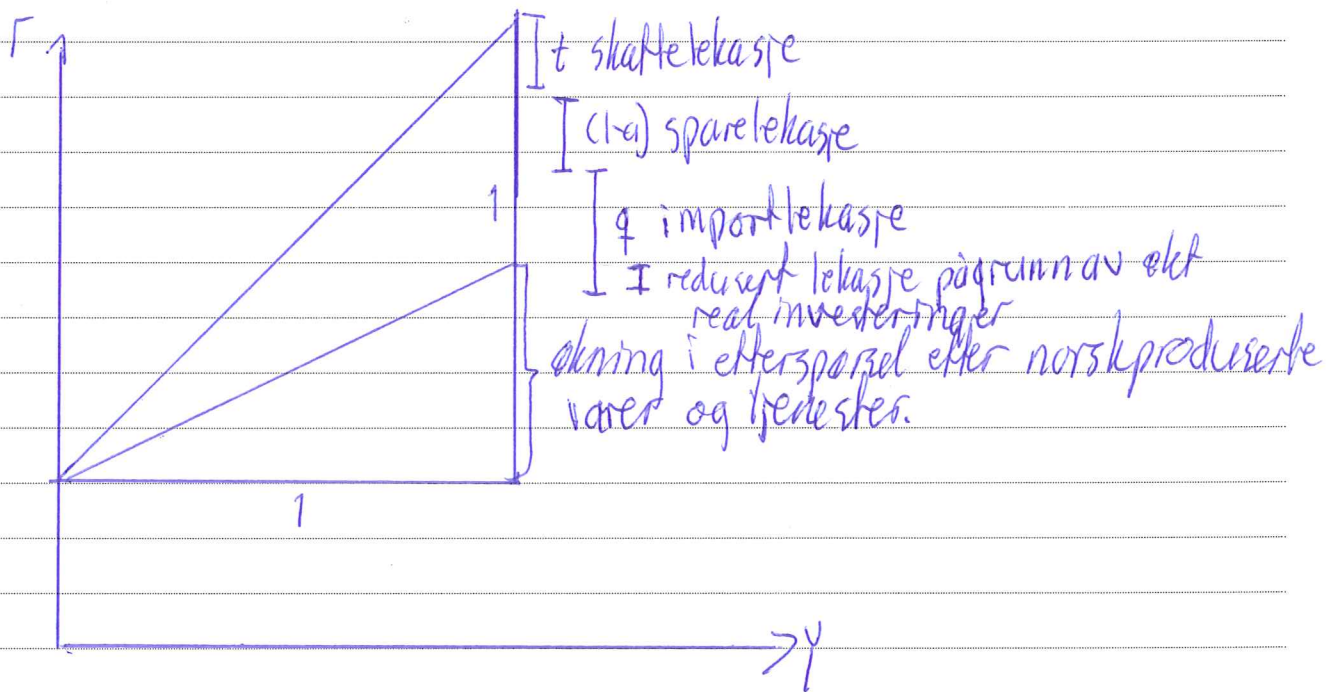 r
t skattelekasje
(1-a) sparelekasje
1
q importlekasje
I redusert lekasje pågrunn av økt
real investeringer
økning i etterspørsel etter norskproduserte
varer og tjenester.
1
Y